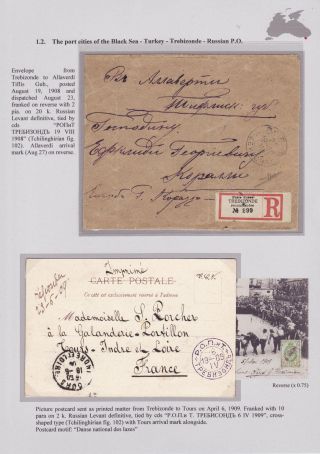 1.2. The port cities of the Black Sea - Turkey - Trebizonde - Russian P.O.
Envelope from
Trebizonde to Allaverdi
Tiflis Gub., posted
August 19, 1908 and
dispatched August 23,
franked on reverse with 2
pia. on 20 k. Russian
Levant definitive, tied by
cds "РОПиТ
ТРЕБИЗОНДЪ 19 VIII
1908" (Tchilinghirian fig.
102). Allaverdi arrival
mark (Aug 27) on reverse.
Аллаверти
Тифлиск: губ:
Господину
TREBIZONDE
R
№ 199
Imprimé
CARTE POSTALE
Ce côté est exclusivement réservé à l'adresse
Mademoiselle S. Porcher
à la Galanderie-Portillon
Tours-Indre et Loire
France
Р.О.П.иТ.
ТРЕБИЗОНДЪ
Reverse (x 0.75)
Picture postcard sent as printed matter from Trebizonde to Tours on April 6, 1909. Franked with 10
para on 2 k. Russian Levant definitive, tied by cds "Р.О.П.и Т. ТРЕБИСОНДЪ 6 IV 1909", cross-
type (Tchilinghirian fig. 102) with Tours arrival mark alongside.
Postcard motif: "Danse national des lazes"